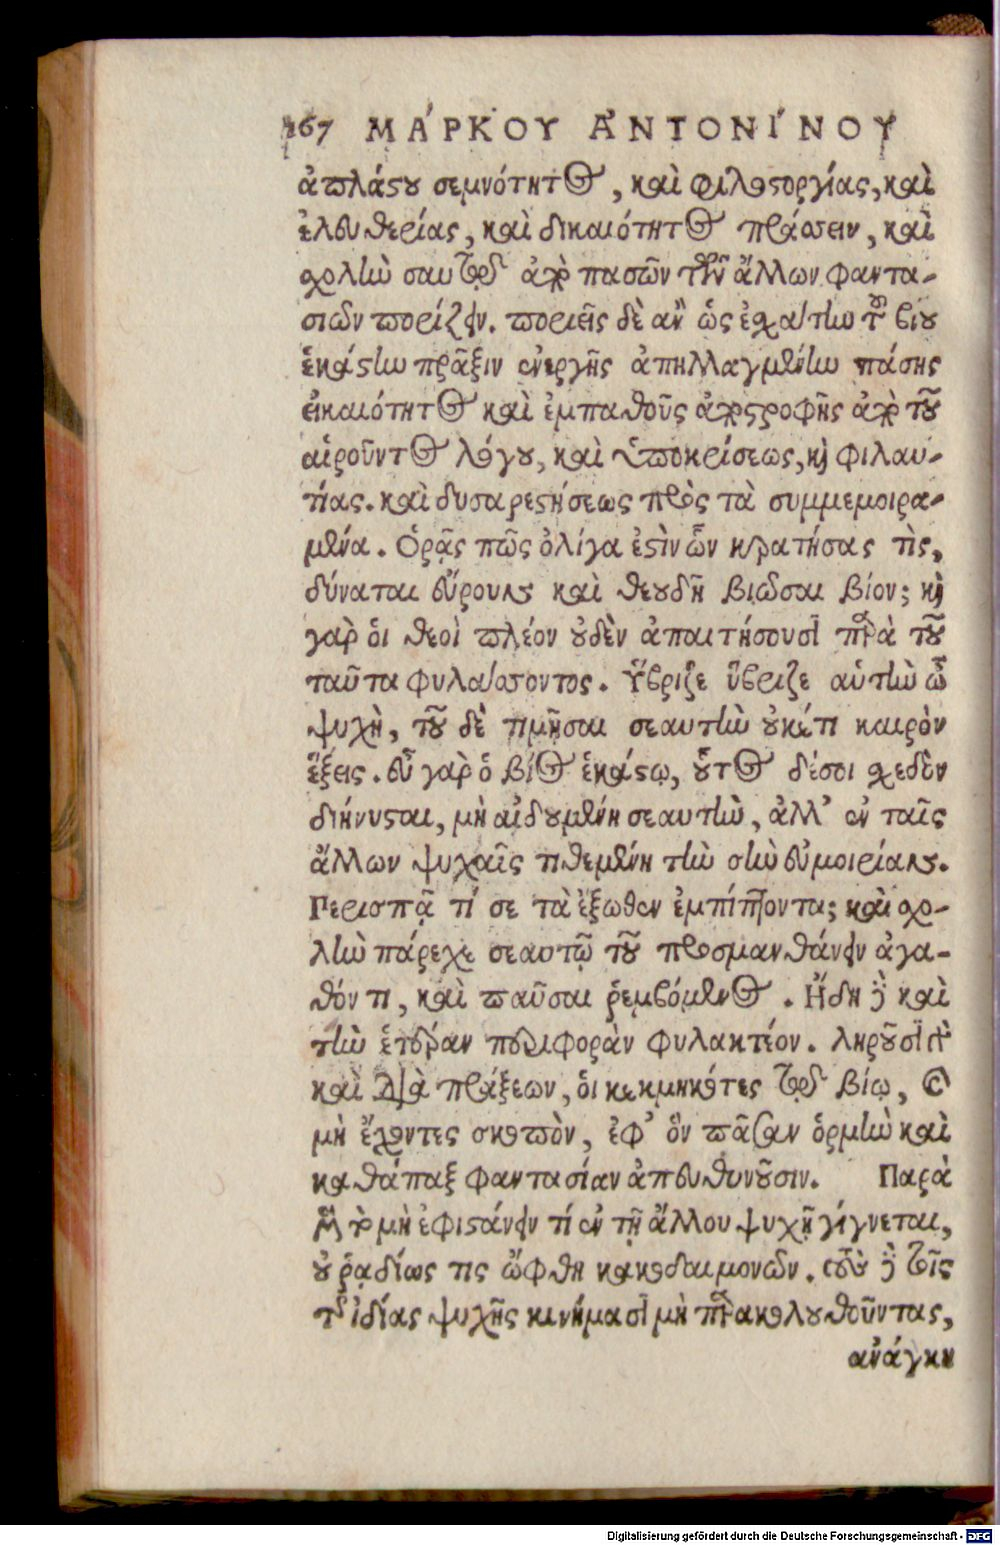 167 ΜΆΡΚΟΥ ἈΝΤΟΝΊΝΟΥ
ἀπλάστου σεμνότητος, καὶ φιλοστοργίας, καὶ
ἐλευθερίας, καὶ δικαιότητος πράσσειν, καὶ
σχολὴν σαυτῷ ἀπὸ πασῶν τῶν ἄλλων φαντα-
σιῶν πορίζειν. ποριεῖς δὲ ἂν ὡς ἐσχάτην τοῦ βίου
ἑκάστην πρᾶξιν ἐνεργῇς ἀπηλλαγμένην πάσης
εἰκαιότητος καὶ ἐμπαθοῦς ἀποστροφῆς ἀπὸ τοῦ
αἱροῦντος λόγου, καὶ ὑποκρίσεως, καὶ φιλαυ-
τίας. καὶ δυσαρεστήσεως πρὸς τὰ συμμεμοιρα-
μένα. Ὁρᾷς πῶς ὀλίγα ἐστὶν ὧν κρατήσας τὶς,
δύναται εὔρουν καὶ θεουδῆ βιῶσαι βίον; καὶ
γὰρ ὁι θεοὶ πλέον οὐδὲν ἀπαιτήσουσι παρὰ τοῦ
ταῦτα φυλάσσοντος. Ὕβριζε ὕβριζε αὑτὴν ὦ
ψυχὴ, τοῦ δὲ τιμῆσαι σεαυτὴν οὐκέτι καιρὸν
ἕξεις. εὖ γὰρ ὁ βίος ἑκάστῳ, οὗτος δέ σοι σχεδὸν
διήνυσται, μὴ αἰδουμένη σεαυτὴν, ἀλλ' ἐν ταῖς
ἄλλων ψυχαῖς τιθεμένη τὴν σὴν εὐμοιρίαν.
Περισπᾷ τί σε τὰ ἔξωθεν ἐμπίπτοντα; καὶ σχο-
λὴν πάρεχε σεαυτῷ τοῦ προσμανθάνειν ἀγα-
θόν τι, καὶ παῦσαι ῥεμβόμενος. Ἤδη δὲ καὶ
τὴν ἑτέραν περιφορὰν φυλακτέον. ληροῦσι γὰρ
καὶ διὰ πράξεων, ὁι κεκμηκότες τῷ βίῳ, καὶ
μὴ ἔχοντες σκοπὸν, ἐφ' ὃν πᾶσαν ὁρμὴν καὶ
καθάπαξ φαντασίαν ἀπευθυνοῦσιν. Παρὰ
μὲν τὸ μὴ ἐφιστάνειν τί ἐν τῇ ἄλλου ψυχῇ γίγνεται,
οὐ ῥᾳδίως τις ὤφθη κακοδαιμονῶν. τοὺς δὲ τοῖς
τῆς ἰδίας ψυχῆς κινήμασι μὴ παρακολουθοῦντας,
ἀνάγκη
Digitalisierung gefördert durch die Deutsche Forschungsgemeinschaft - DFG